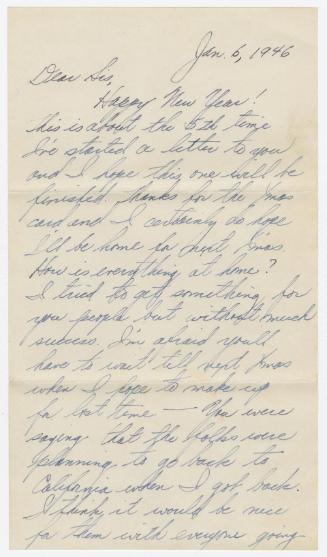 Jan. 6, 1946
Dear Sis,
Happy New Year!
this is about the 5th time
I've started a letter to you
and I hope this one will be
finished. Thanks for the Xmas
card and I certainly do hope
I'll be home for next Xmas.
How is everything at home?
I tried to get something for
you people but without much
success. I'm afraid you'll
have to wait till next Xmas
when I hope to make up
for lost time — You were
saying that the folks were
planning to go back to
California when I got back.
I think it would be nice
for them with everyone going